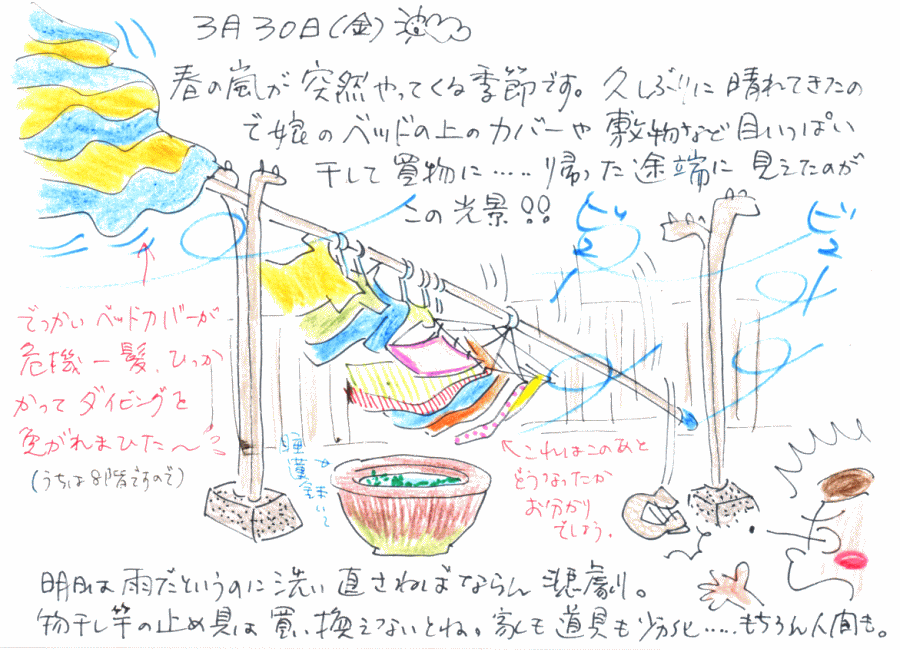 3月30日(金)
春の嵐が突然やってくる季節です。久しぶりに晴れてきたの
で娘のベッドの上のカバーや敷物など目いっぱい
干して買物に…..帰った途端に見えたのが
この光景!!
ビュー
ビュー
でっかいベッドカバーが
危機一髪、ひっか
かってダイビングを
免がれまひた〜
(うちは8階ですので)
睡蓮鉢
これはこのあと
どうなったか
お分かり
でしょう。
明日は雨だというのに洗い直さねばならん悲劇。
物干し竿の止め具は買い換えないとね。家も道具も少しづつ……もちろん人間も。